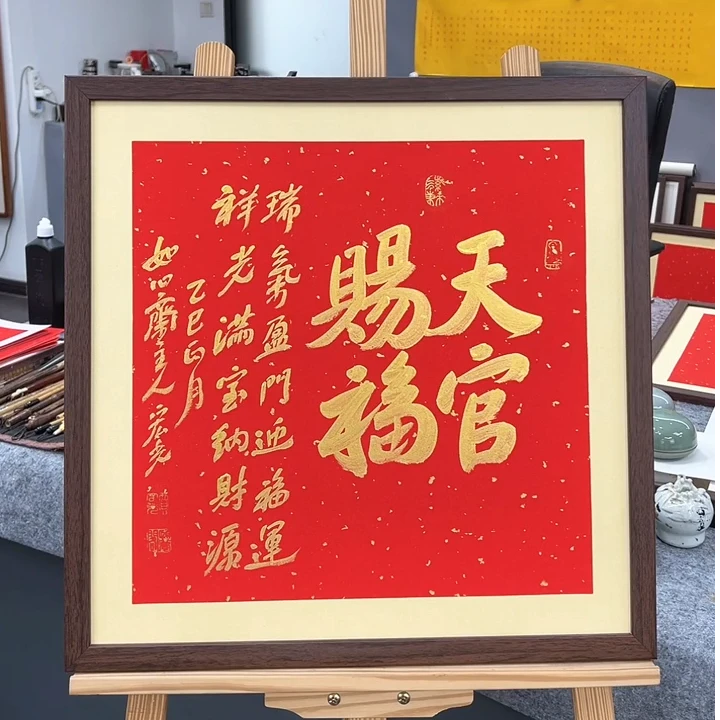 天官
賜福
瑞氣盈門迎福運
祥光满宝納財源
乙巳正月
如心齋主人宏光